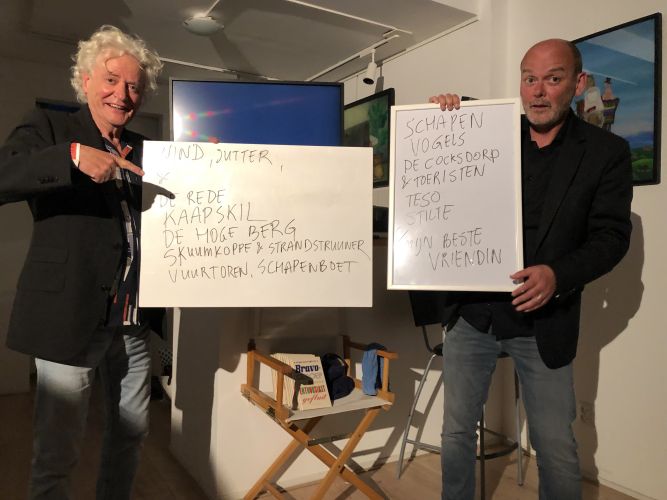 WIND, JUTTER,
&
DE REDE
KAAPSKIL
DE HOGE BERG
SKUUMKOPPE & STRANDSTRUINER
VUURTOREN, SCHAPENBOET
SCHAPEN
VOGELS
DE COCKSDORP
& TOERISTEN
TESO
STILTE
MIJN BESTE
VRIENDIN
Bravo
ENTHOUSIAST
gefluit